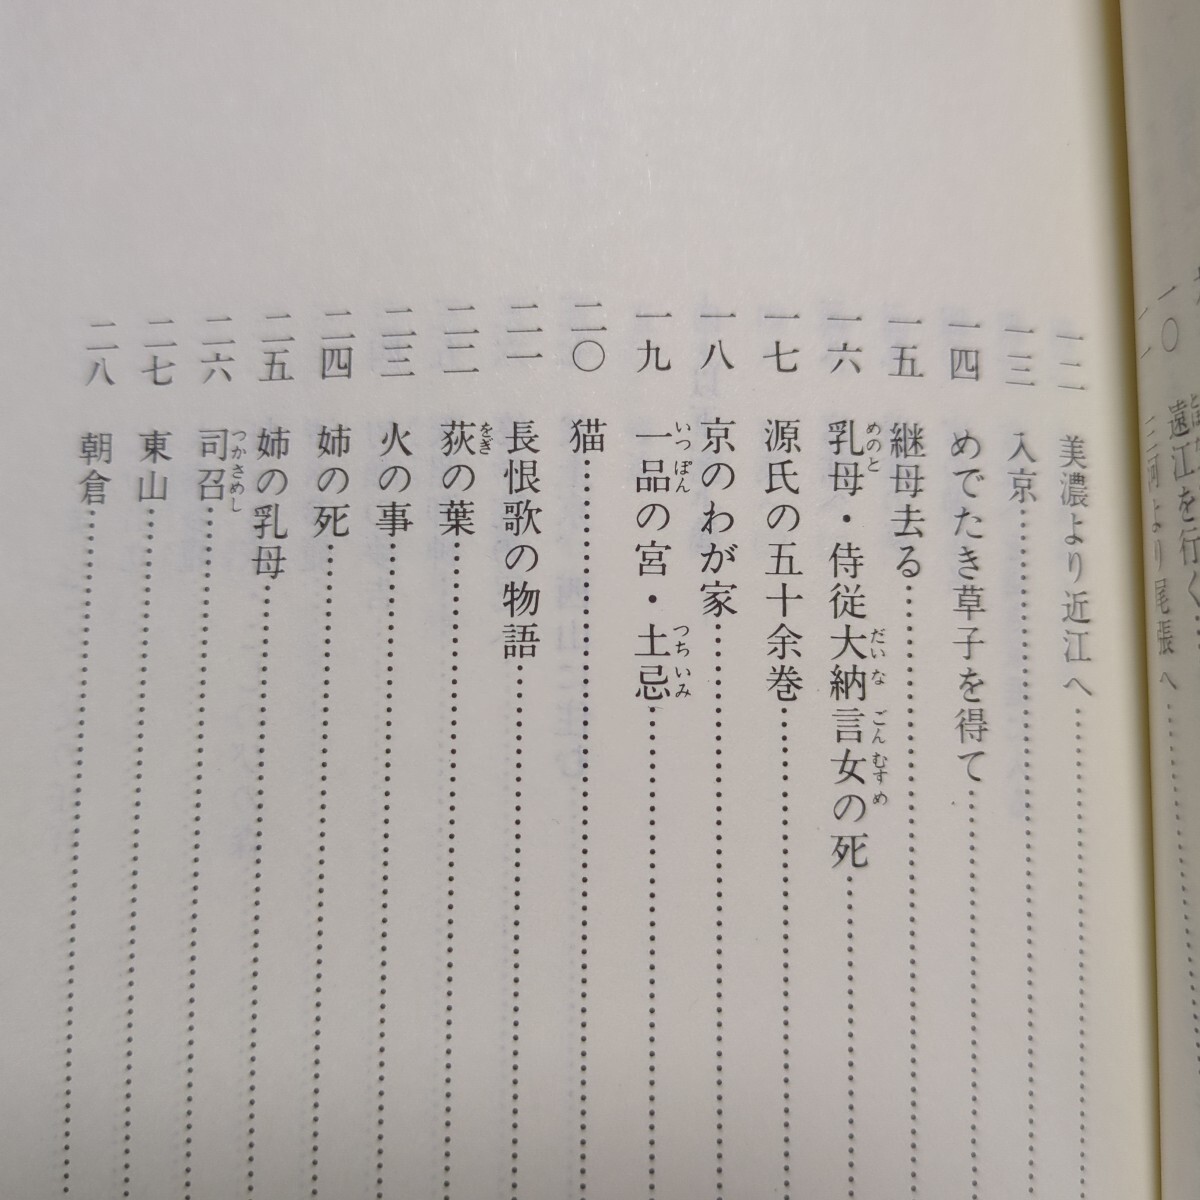 一〇 遠江を行く
三河より尾張へ
一二 美濃より近江へ
一三 入京
一四 めでたき草子を得て
一五 継母去る
一六 乳母・侍従大納言女の死
めのと だいなごんむすめ
一七 源氏の五十余巻
一八 京のわが家
一九 一品の宮・土忌
いつぽん つちいみ
二〇 猫
二一 長恨歌の物語
二二 荻の葉
をぎ
二三 火の事
二四 姉の死
二五 姉の乳母
二六 司召
つかさめし
二七 東山
二八 朝倉